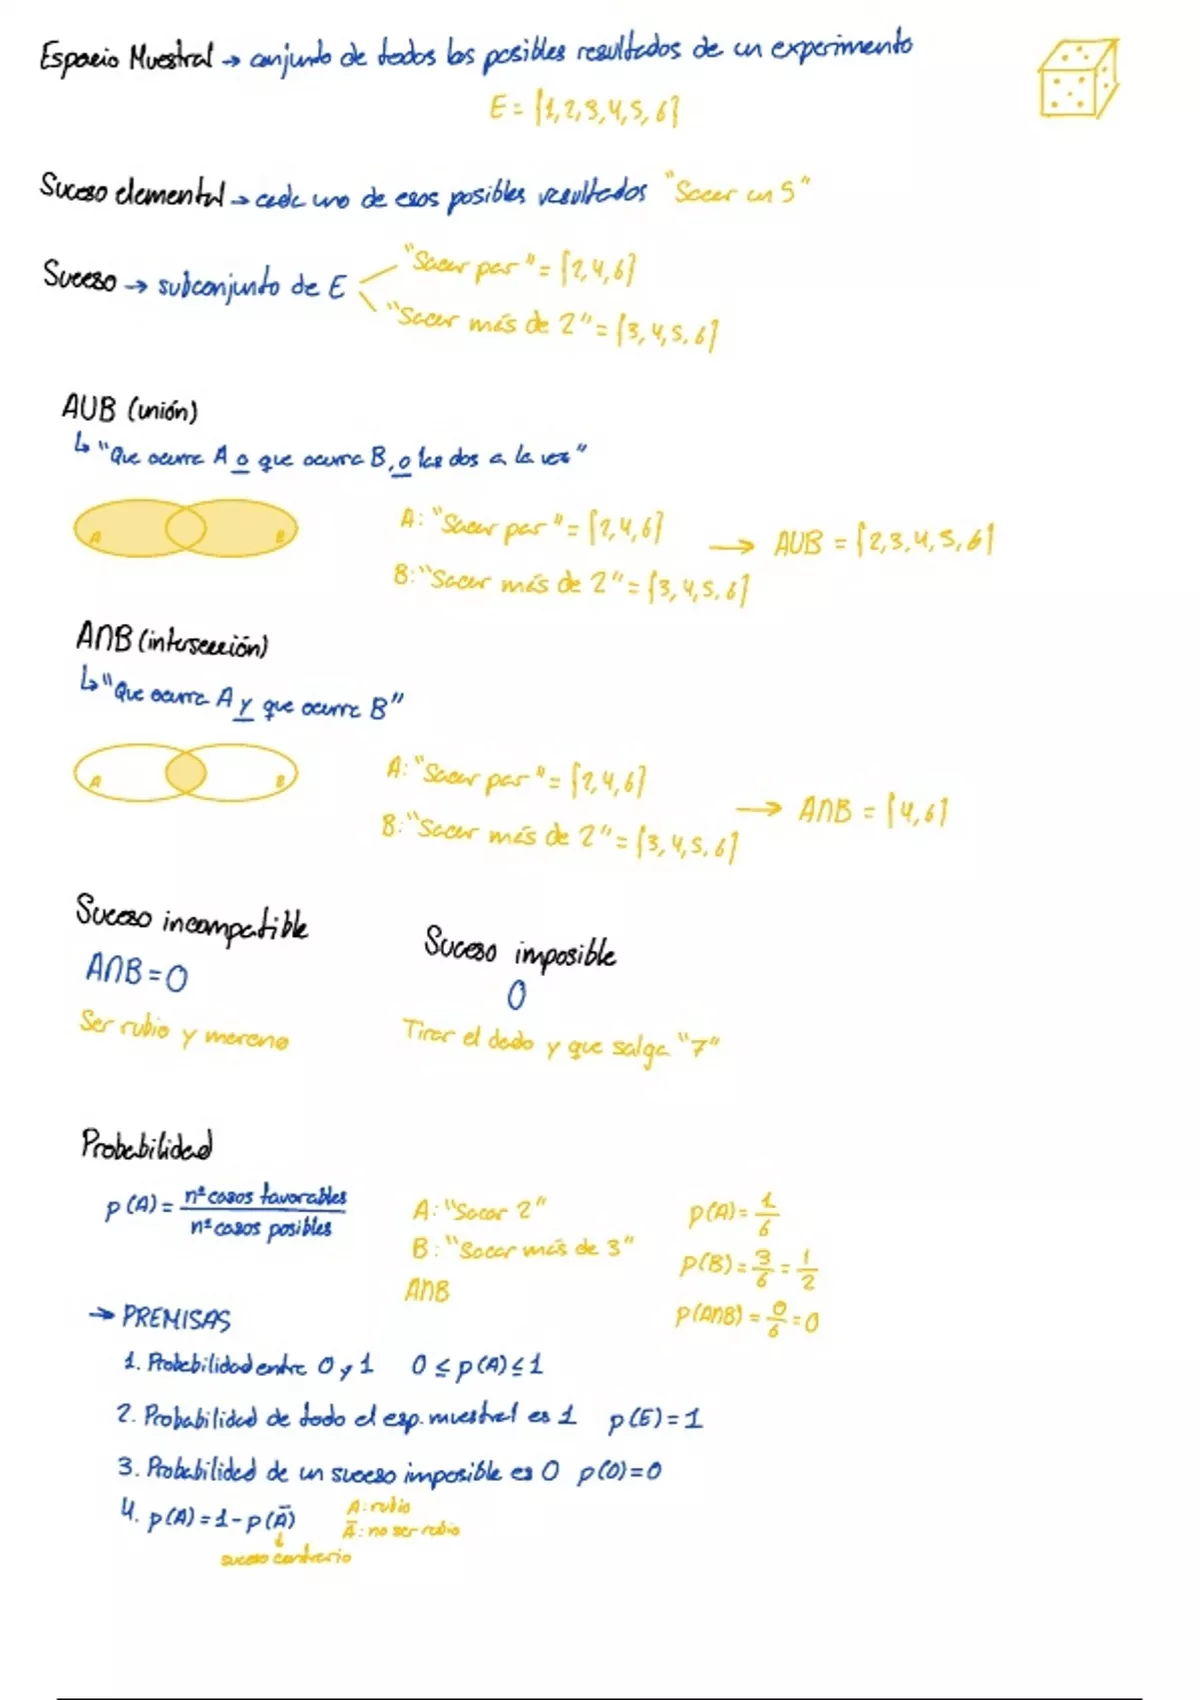 Espacio Muestral → conjunto de todos los posibles resultados de un experimento
E = {1,2,3,4,5,6}
Suceso elemental → cada uno de esos posibles resultados "Sacar un 5"
Suceso → subconjunto de E
"Sacar par" = {2,4,6}
"Sacar más de 2" = {3,4,5,6}
AUB (unión)
↳ "Que ocurra A o que ocurra B, o las dos a la vez"
A B
A: "Sacar par" = {2,4,6}
B: "Sacar más de 2" = {3,4,5,6}
→ AUB = {2,3,4,5,6}
A∩B (intersección)
↳ "Que ocurra A y que ocurra B"
A B
A: "Sacar par" = {2,4,6}
B: "Sacar más de 2" = {3,4,5,6}
→ A∩B = {4,6}
Suceso incompatible
A∩B = 0
Ser rubio y moreno
Suceso imposible
0
Tirar el dado y que salga "7"
Probabilidad
p(A) = nº casos favorables / nº casos posibles
A: "Sacar 2" p(A) = 1/6
B: "Sacar más de 3" p(B) = 3/6 = 1/2
A∩B p(A∩B) = 0/6 = 0
→ PREMISAS
1. Probabilidad entre 0 y 1 0 ≤ p(A) ≤ 1
2. Probabilidad de todo el esp. muestral es 1 p(E) = 1
3. Probabilidad de un suceso imposible es 0 p(0) = 0
4. p(A) = 1 - p(Ā)
suceso contrario
A: rubio
Ā: no ser rubio